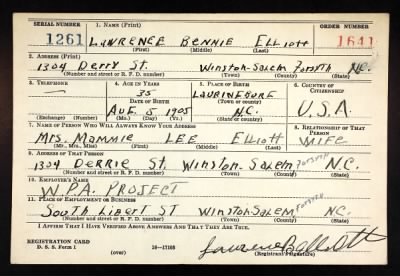 SERIAL NUMBER 1. NAME (Print) ORDER NUMBER
1261 LAWRENCE BENNIE ELLIOTT 1641
(First) (Middle) (Last)
2. ADDRESS (Print)
1304 Derry St. Winston-Salem Forsyth N.C.
(Number and street or R. F. D. number) (Town) (County) (State)
3. TELEPHONE 4. AGE IN YEARS 5. PLACE OF BIRTH 6. COUNTRY OF CITIZENSHIP
— 35 LAURINBURG
DATE OF BIRTH (Town or county)
AUG. 5 1905 N.C. U.S.A.
(Exchange) (No.) (Mo.) (Day) (Yr.) (State or country)
7. NAME OF PERSON WHO WILL ALWAYS KNOW YOUR ADDRESS 8. RELATIONSHIP OF THAT PERSON
Mrs. Mammie LEE Elliott WIFE
(Mr., Mrs., Miss) (First) (Middle) (Last)
9. ADDRESS OF THAT PERSON
1304 DERRIE St. Winston-Salem Forsyth N.C.
(Number and street or R. F. D. number) (Town) (County) (State)
10. EMPLOYER'S NAME
W.P.A. PROJECT
11. PLACE OF EMPLOYMENT OR BUSINESS
South Libert St Winston-Salem Forsyth N.C.
(Number and street or R. F. D. number) (Town) (County) (State)
I AFFIRM THAT I HAVE VERIFIED ABOVE ANSWERS AND THAT THEY ARE TRUE.
REGISTRATION CARD
D. S. S. Form 1 (over) 16—17105 (Registrant's signature)